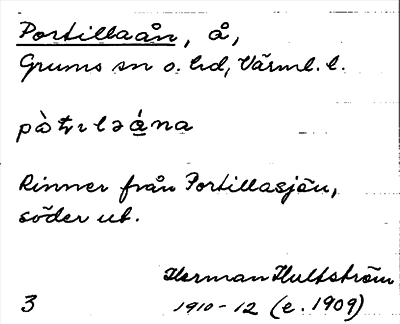 Portillaån, å,
Grums sn o. hd, Värml. l.
Rinner från Portillasjön,
söder ut.
Herman Hultström
3 1910-12 (e. 1909)